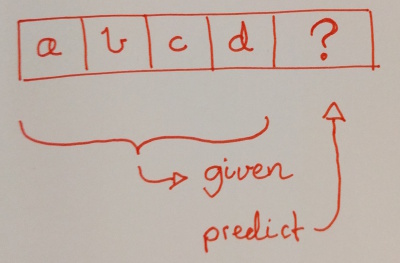 a b c d ?
given
predict